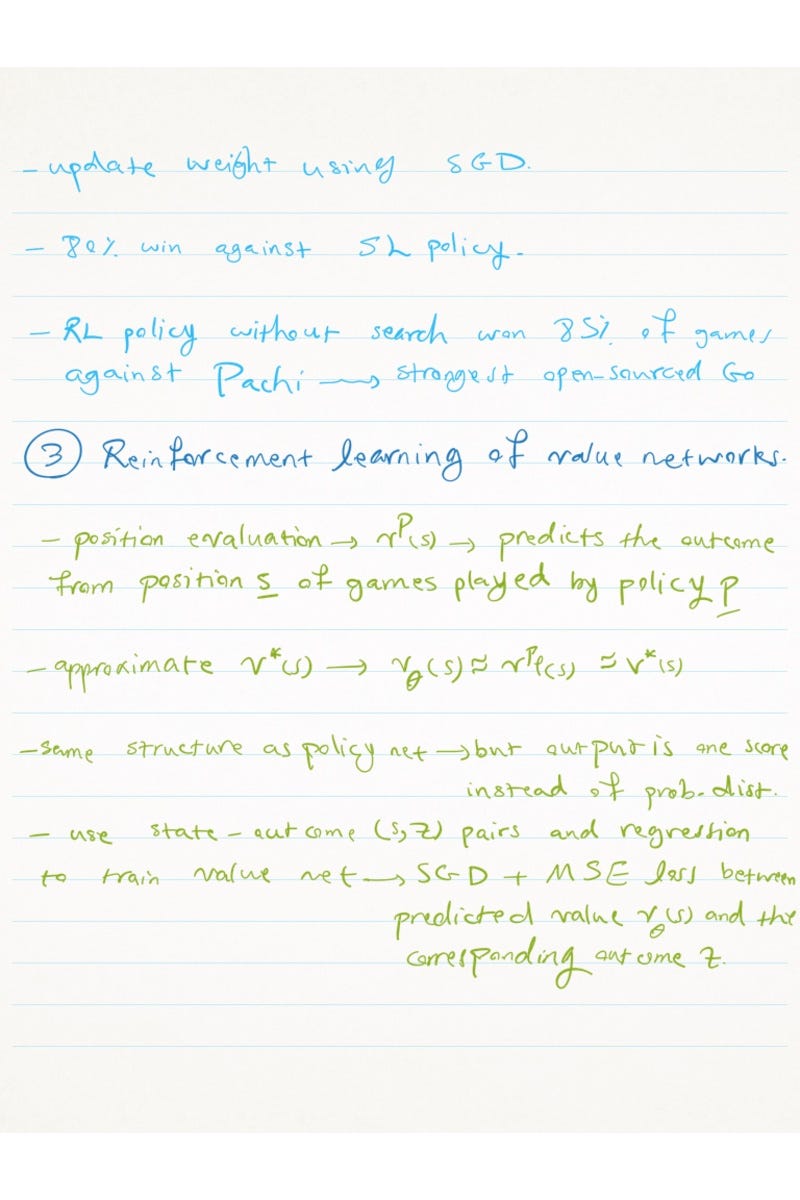 - update weight using SGD.
- 80% win against SL policy.
- RL policy without search won 85% of games
against Pachi → strongest open-sourced Go
③ Reinforcement learning of value networks.
- position evaluation → v^p(s) → predicts the outcome
from position s of games played by policy p
- approximate v*(s) → v_θ(s) ≈ v^Pρ(s) ≈ v*(s)
- same structure as policy net → but output is one score
instead of prob. dist.
- use state-outcome (s,z) pairs and regression
to train value net → SGD + MSE loss between
predicted value v_θ(s) and the
corresponding outcome z.